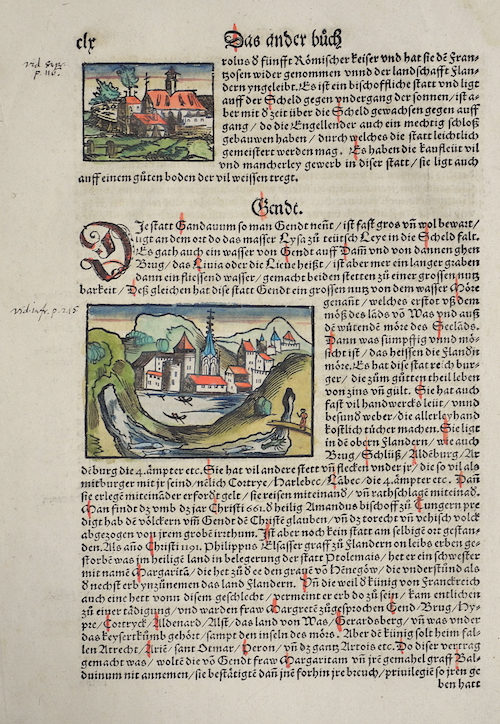 clx
Das ander bůch
vid. supr.
p. 116.
rolus d fünfft Römischer keiser vnd hat sie dē Fran-
zosen wider genommen vnnd der landschafft Flan-
dern yngeleibt. Es ist ein bischoffliche statt vnd ligt
auff der Scheld gegen vndergang der sonnen/ ist a-
ber mit d zeit über die Scheld gewachsen gegen auff
gang/ do die Engellender auch ein mechtig schloß
gebauwen haben/ durch welches die statt leichtlich
gemeistert werden mag. Es haben die kaufleüt vil
vnd mancherley gewerb in diser statt/ sie ligt auch
auff einem gůten boden der vil weissen tregt.
Gendt.
DJe statt Gandauum so man Gendt neñt/ ist fast gros vñ wol bewart/
ligt an dem ort do das wasser Lysa zů teütsch Leye in die Scheld falt.
Es gath auch ein wasser von Gendt auff Dam̃ vnd von dannen ghen
Brug/ das Luia oder die Lieue heißt/ ist aber mer ein langer graben
dann ein fliessend wasser/ gemacht beiden stetten zů einer grossen nutz
barkeit/ Deß gleichen hat dise statt Gendt ein grossen nutz von dem wasser Möre
vid. infr. p. 215
genañt/ welches erstot vß dem
möß des lāds vō Was vnd auß
dē wůtende möre des Seelāds.
Dann was sumpffig vnnd mö-
sicht ist/ das heissen die Flandrī
möre. Es hat dise stat reich bur-
ger/ die zům gůtten theil leben
von zins vñ gült. Sie hat auch
fast vil handwercks leüt/ vnnd
besund weber/ die allerley hand
kostlich tücher machen. Sie ligt
in dē obern Flandern/ wie auch
Brug/ Schlüß/ Aldēburg/ Ar
dēburg die 4. āmpter etc. Sie hat vil andere stett vñ flecken vnder jr/ die so vil als
mitburger mit jr seind/ nēlich Cortrye/ Harlebec/ Lābec/ die 4. āmpter etc. Dañ
sie erlegē miteināder erfordt gelt/ sie reisen miteinand/ vñ rathschlagē miteinād.
Man findt dz vmb dz jar Christi 661. d heilig Amandus bischoff zů Tungern pre
digt hab dē völckern vm̄ Gendt dē Christē glauben/ vñ dz torecht vñ vehisch volck
abgezogen von jrem grobē irrthum. Jst aber noch kein statt am selbigē ort gestan-
den. Als año Christi 1191. Philippus Elsasser graff zů Flandern on leibs erben ge-
storbē was im heiligē land in belegerung der statt Ptolemais/ het er ein schwester
mit namē Margarita/ die hot zů d ee den grauē vō Henegow/ die vnderstůnd als
d nechst erb ynzůnemen das land Flandern. Vñ die weil d künig von Franckreich
auch eine hett vonn disem geschlecht/ vermeint er erb do zů sein/ kam entlichen
zů einer tädigung/ vnd warden fraw Margretē zůgesprochen Gend/ Brug/ Hy-
pre/ Cortryck/ Aldenard/ Alst/ das land von Was/ Gerardsberg/ vñ was vnder
das keysertkůmb gehört/ sampt den inseln des mörs. Aber dē künig solt heim fal-
len Atrecht/ Ariē/ sant Otmar/ Heron/ vñ dz gantz Artois etc. Do diser vertrag
gemacht was/ woltē die vō Gendt fraw Margaritam vñ jrē gemahel graff Bal-
duinum nit annemen/ sie bestätigtē dañ jnē forhin jre breuch/ priuilegiē so jren ge
ben hatt